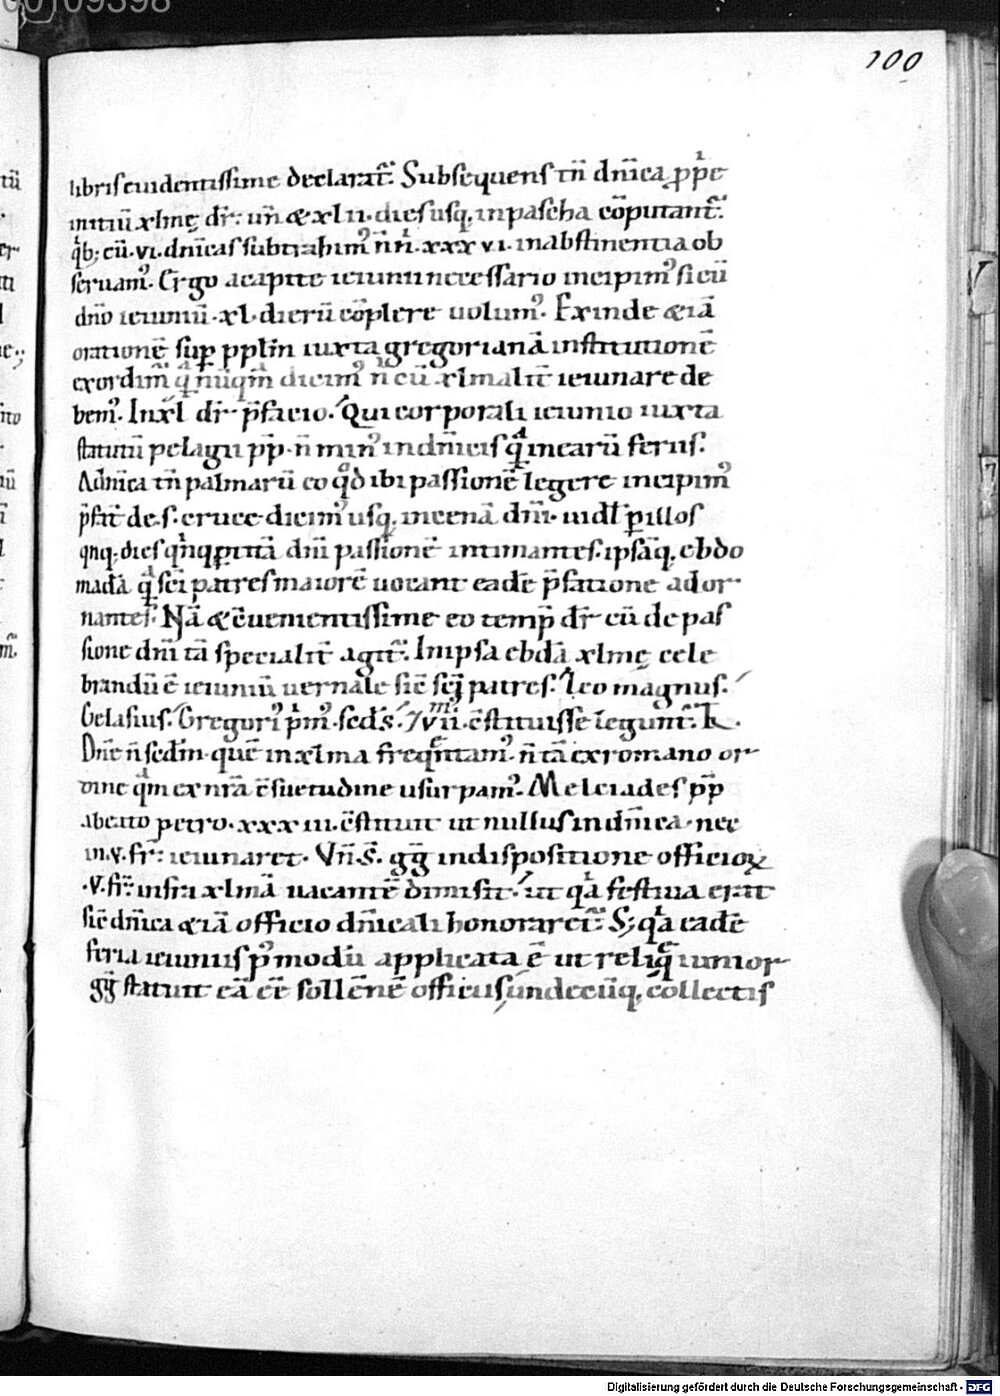 00109398
100
libris euidentissime declarat᷑. Subsequens tñ dñica ꝓpͥe
initiū xlmę dr̄: uñ & xlii. dies usq; in pascha cōputant᷑.
qͥb; cū .vi. dñicas subtrahimꝰ ñ nͥ .xxxvi. in abstinentia ob
seruamꝰ. Ergo a capite ieiunii necessario incipimꝰ si cū
dño ieiuniū .xl. dierū cōplere uolumꝰ. Exinde & iā
orationē suꝑ pplm̄ iuxta gregorianā institutionē
exordim̄ qͣ nūqͣm dicimꝰ ñ cū xlmalit̄ ieiunare de
bemꝰ. In xl dr̄ p̄facio. Qui corporali ieiunio iuxta
statutū pelagii pp̄. ñ minꝰ in dñicis qͣ in earū feriis.
A dñica tñ palmarū eo qͦd ibi passionē legere incipimꝰ
p̄fat̄ de .s. cruce dicimꝰ usq; in cenā dñi. uidl̄ ꝑ illos
qnq; dies qͥnqꝑtitā dñi passionē intimantes. ipsāq; ebdo
madā qͣ sc̄i patres maiorē uocant eadē p̄fatione ador
nantes. Nā & c̄uenientissime eo temp̄ dr̄ cū de pas
sione dñi tā specialit̄ agit᷑. In ipsa ebdā xlmę cele
brandū ē ieiuniū uernale sic̄ sc̄i patres. Leo magnus.
Gelasius. Gregoriꝰ pͥmꝰ. seds̄. 7 vii. c̄stituisse legunt᷑. K.
Dñe ñ sedm̄. quē in xlma freqn̄tamꝰ. ñ tā ex romano or
dine qͣm ex nr̄a c̄suetudine usurpamꝰ. Melciades pp̄
a beato petro .xxxiii. c̄stituit ut nullus in dñica. nec
in .v. fr̄: ieiunaret. Vñ .S. gḡ in dispositione officioꝝ
.v. fr̄: infra xlmā uacantē dimisit. ut qͣ festiua erat
sic̄ dñica & iā officio dñicali honoraret᷑. S; qͣ eadē
feria ieiuniis pͥ modū applicata ē ut reliqͣ iunior
gḡ statuit eā eē sollēnē officiis undecūq; collectis
Digitalisierung gefördert durch die Deutsche Forschungsgemeinschaft - DFG